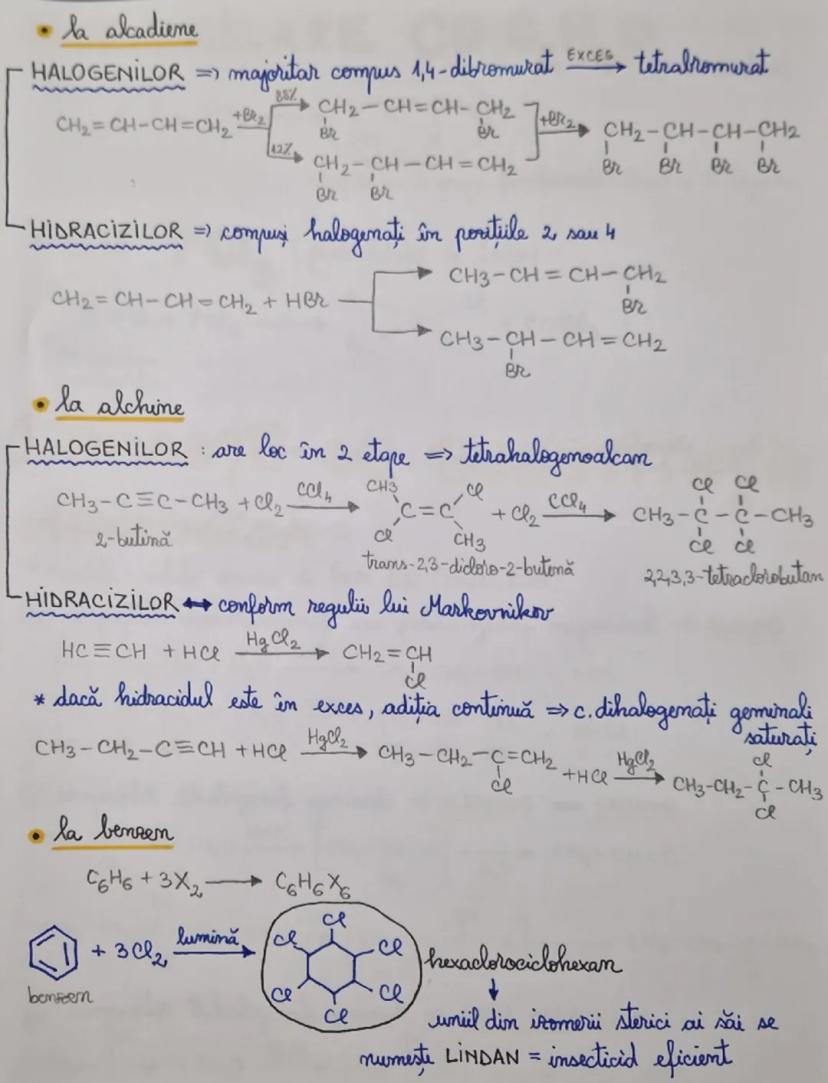 • la alcadiene
HALOGENILOR => majoritar compus 1,4-dibromurat EXCES → tetrabromurat
88% CH2-CH=CH-CH2
Br Br
CH2=CH-CH=CH2 +Br2 → +Br2 → CH2-CH-CH-CH2
Br Br Br Br
12% CH2-CH-CH=CH2
Br Br
HIDRACIZILOR => compuși halogenați în pozițiile 2 sau 4
CH3-CH=CH-CH2
Br
CH2=CH-CH=CH2 + HBr →
CH3-CH-CH=CH2
Br
• la alchine
HALOGENILOR : are loc în 2 etape => tetrahalogenoalcan
CH3-C≡C-CH3 + Cl2 CCl4 → CH3 Cl C=C Cl CH3 + Cl2 CCl4 → Cl Cl CH3-C-C-CH3 Cl Cl
2-butină trans-2,3-dicloro-2-butenă 2,2,3,3-tetraclorobutan
HIDRACIZILOR ↔ conform regulii lui Markovnikov
HC≡CH + HCl HgCl2 → CH2=CH
Cl
* dacă hidracidul este în exces, adiția continuă => c. dihalogenați geminali
saturați
CH3-CH2-C≡CH + HCl HgCl2 → CH3-CH2-C=CH2 Cl + HCl HgCl2 → Cl CH3-CH2-C-CH3 Cl
• la benzen
C6H6 + 3X2 → C6H6X6
+ 3Cl2 lumină → Cl Cl Cl Cl Cl Cl hexaclorociclohexan
benzen
↓
unul din izomerii sterici ai săi se
numește LINDAN = insecticid eficient